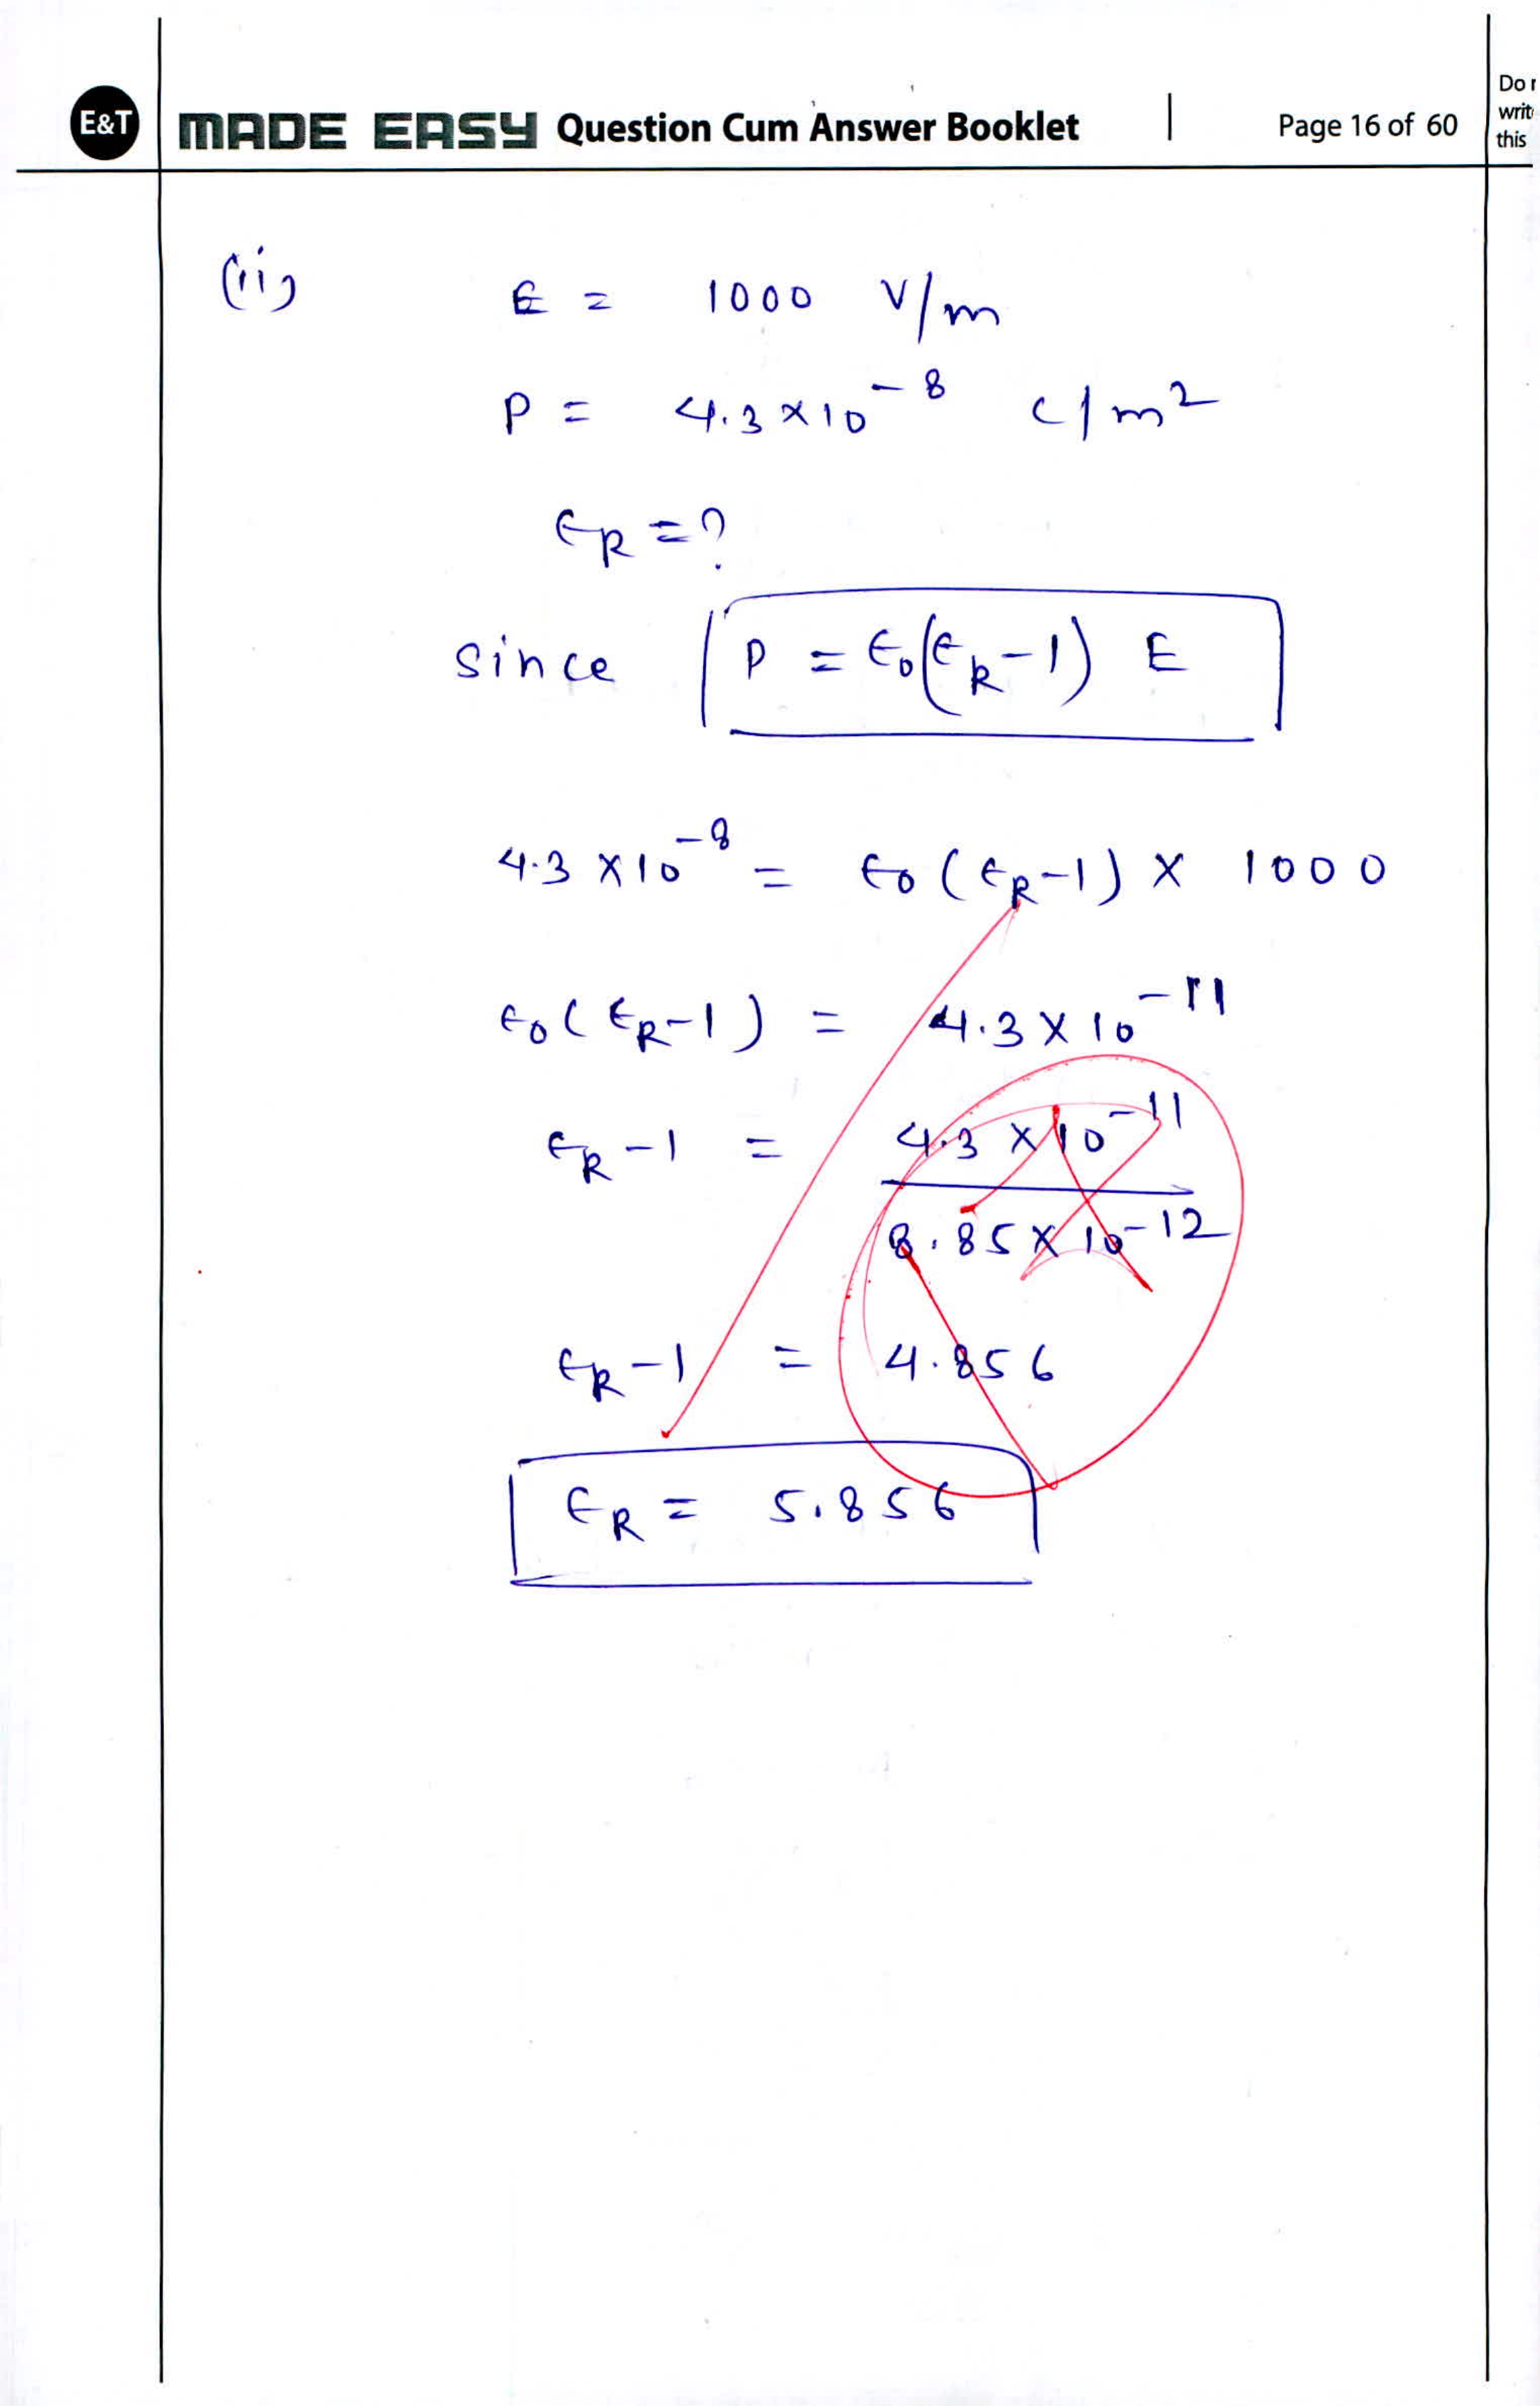 E&T MADE EASY Question Cum Answer Booklet | Page 16 of 60
Do
writ
this
(ii)
E = 1000 V/m
P = 4.3 × 10⁻⁸ C/m²
ϵ_R = ?
Since P = ϵ₀(ϵ_R - 1) E
4.3 × 10⁻⁸ = ϵ₀(ϵ_R - 1) × 1000
ϵ₀(ϵ_R - 1) = 4.3 × 10⁻¹¹
ϵ_R - 1 = 4.3 × 10⁻¹¹
8.85 × 10⁻¹²
ϵ_R - 1 = 4.856
ϵ_R = 5.856